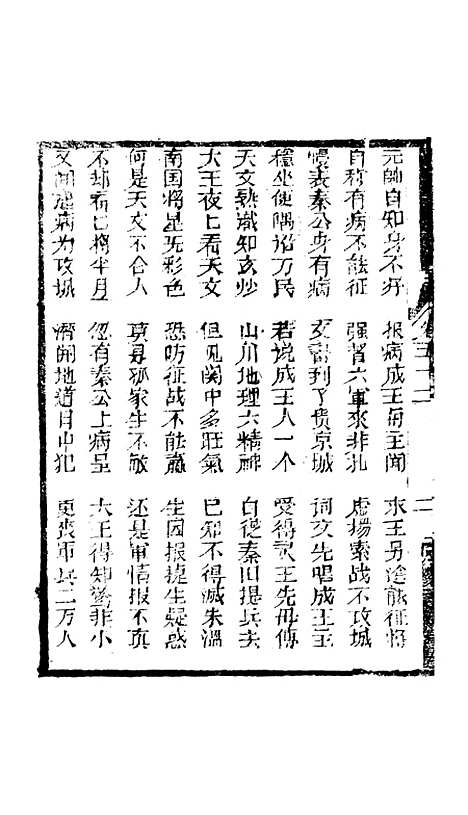 元帥自知身不好 报病成王毋王闻 求王另途能征将
自称有病不能征 强督六軍來非礼 虚揚索战不攻城
慢表秦公身有病 文書到了贵京城 词文先唱成王主
穩坐便隅治万民 若说成王人一个 受得武王先毋傳
天文熟識知玄妙 山川地理六精神 自從秦旧提兵去
大王夜上看天文 但见関中多旺氣 已知不得滅朱溫
南国将星无彩色 恐防征战不能贏 生因报捷生疑惑
何是天文不合人 莫是孤家生不敏 还是軍情报不真
不却看已将半月 忽有秦公上病呈 大王得知驚非小
又闻虚病为攻城 濟開地道自中犯 更喪軍兵二万人
卷三十二
二